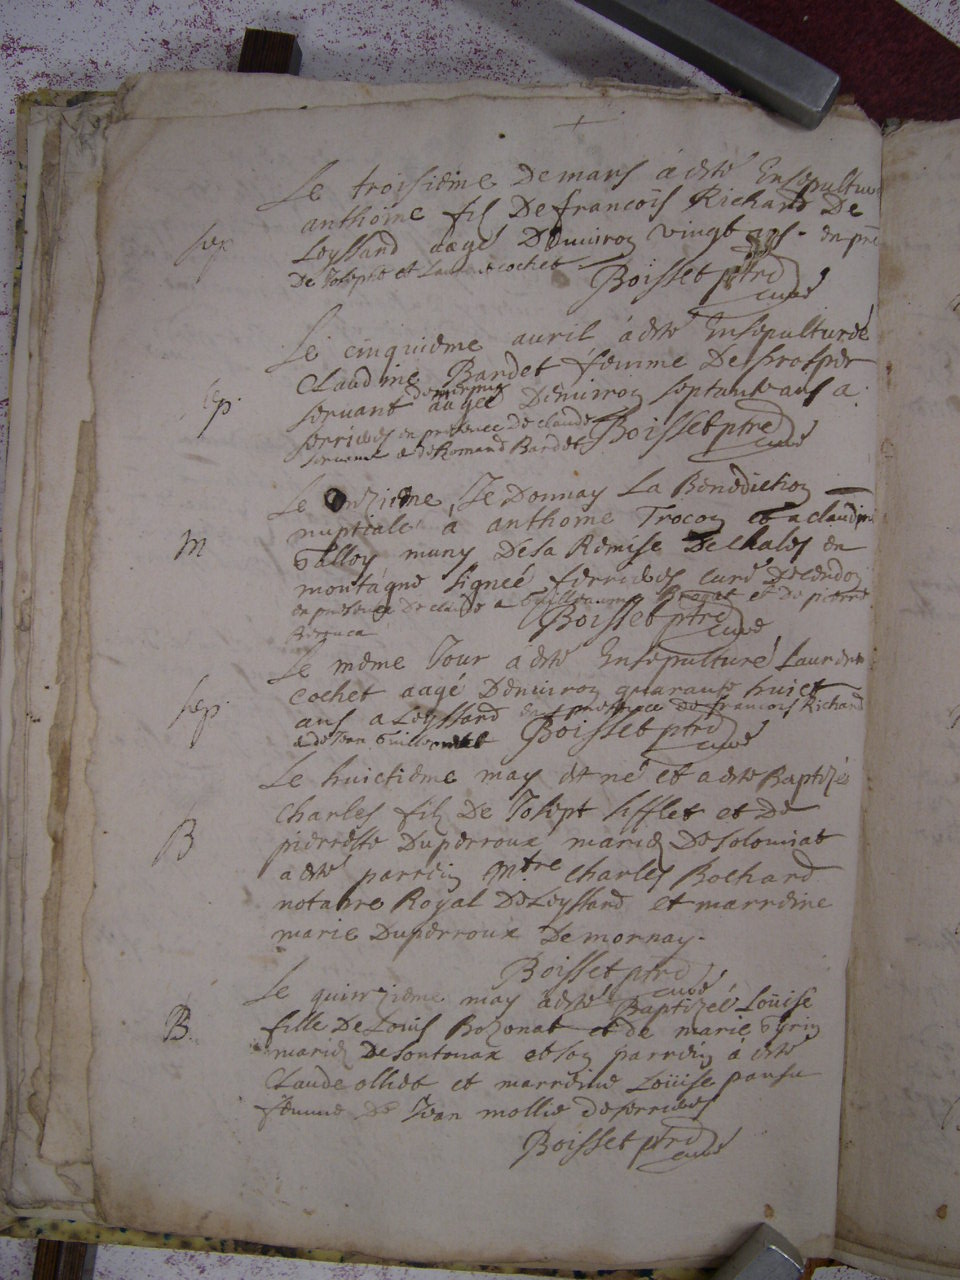 Le troisieme De mars á esté Ensepulturé
anthoine filz De francois Richard De
sep.
Leyssard aagé Denuiron vingt ans. en pre
De Joseph et Laurent cochet Boisset ptre
curé
Le cinquieme auril á esté Ensepulturéé
Claudine Bardet femme De prosper
sep.
servant aagéé Denuiron septante ans a
serrieres en presence De claude Boisset ptre
servant & de Romand Bardet curé
Le onzieme Je Donnay La Benediction
nuptiale a anthoine Trocon et a claudine
M
Valloy muny De la Remise De chales en
montagne signeé ferrieres curé De
en presence De claude a Guillaume et De pierre
Boisset ptre
curé
Le meme Jour á esté Ensepulturé Laurent
cochet aagé Denuiron quarante huict
sep.
ans a Leyssard en presence De francois Richard
& de Jean Guillermet Boisset ptre
curé
Le huictieme may est né et a esté Baptizé
Charles filz De Josept sifflet et De
B
pierrette Duperroux mariez De solomiat
a esté parrein Mtre Charles Bochard
notaire Royal De Leyssard et marreine
marie Duperroux De mornay.
Boisset ptre
curé
Le quinzieme may á esté Baptizéé Loüise
B.
fille De Loüis Bozonat et de marie
mariez De sontonax et son parrein á esté
Claude olliet et marreine Loüise pansu
femme De Jean mollie de serrieres
Boisset ptre
curé